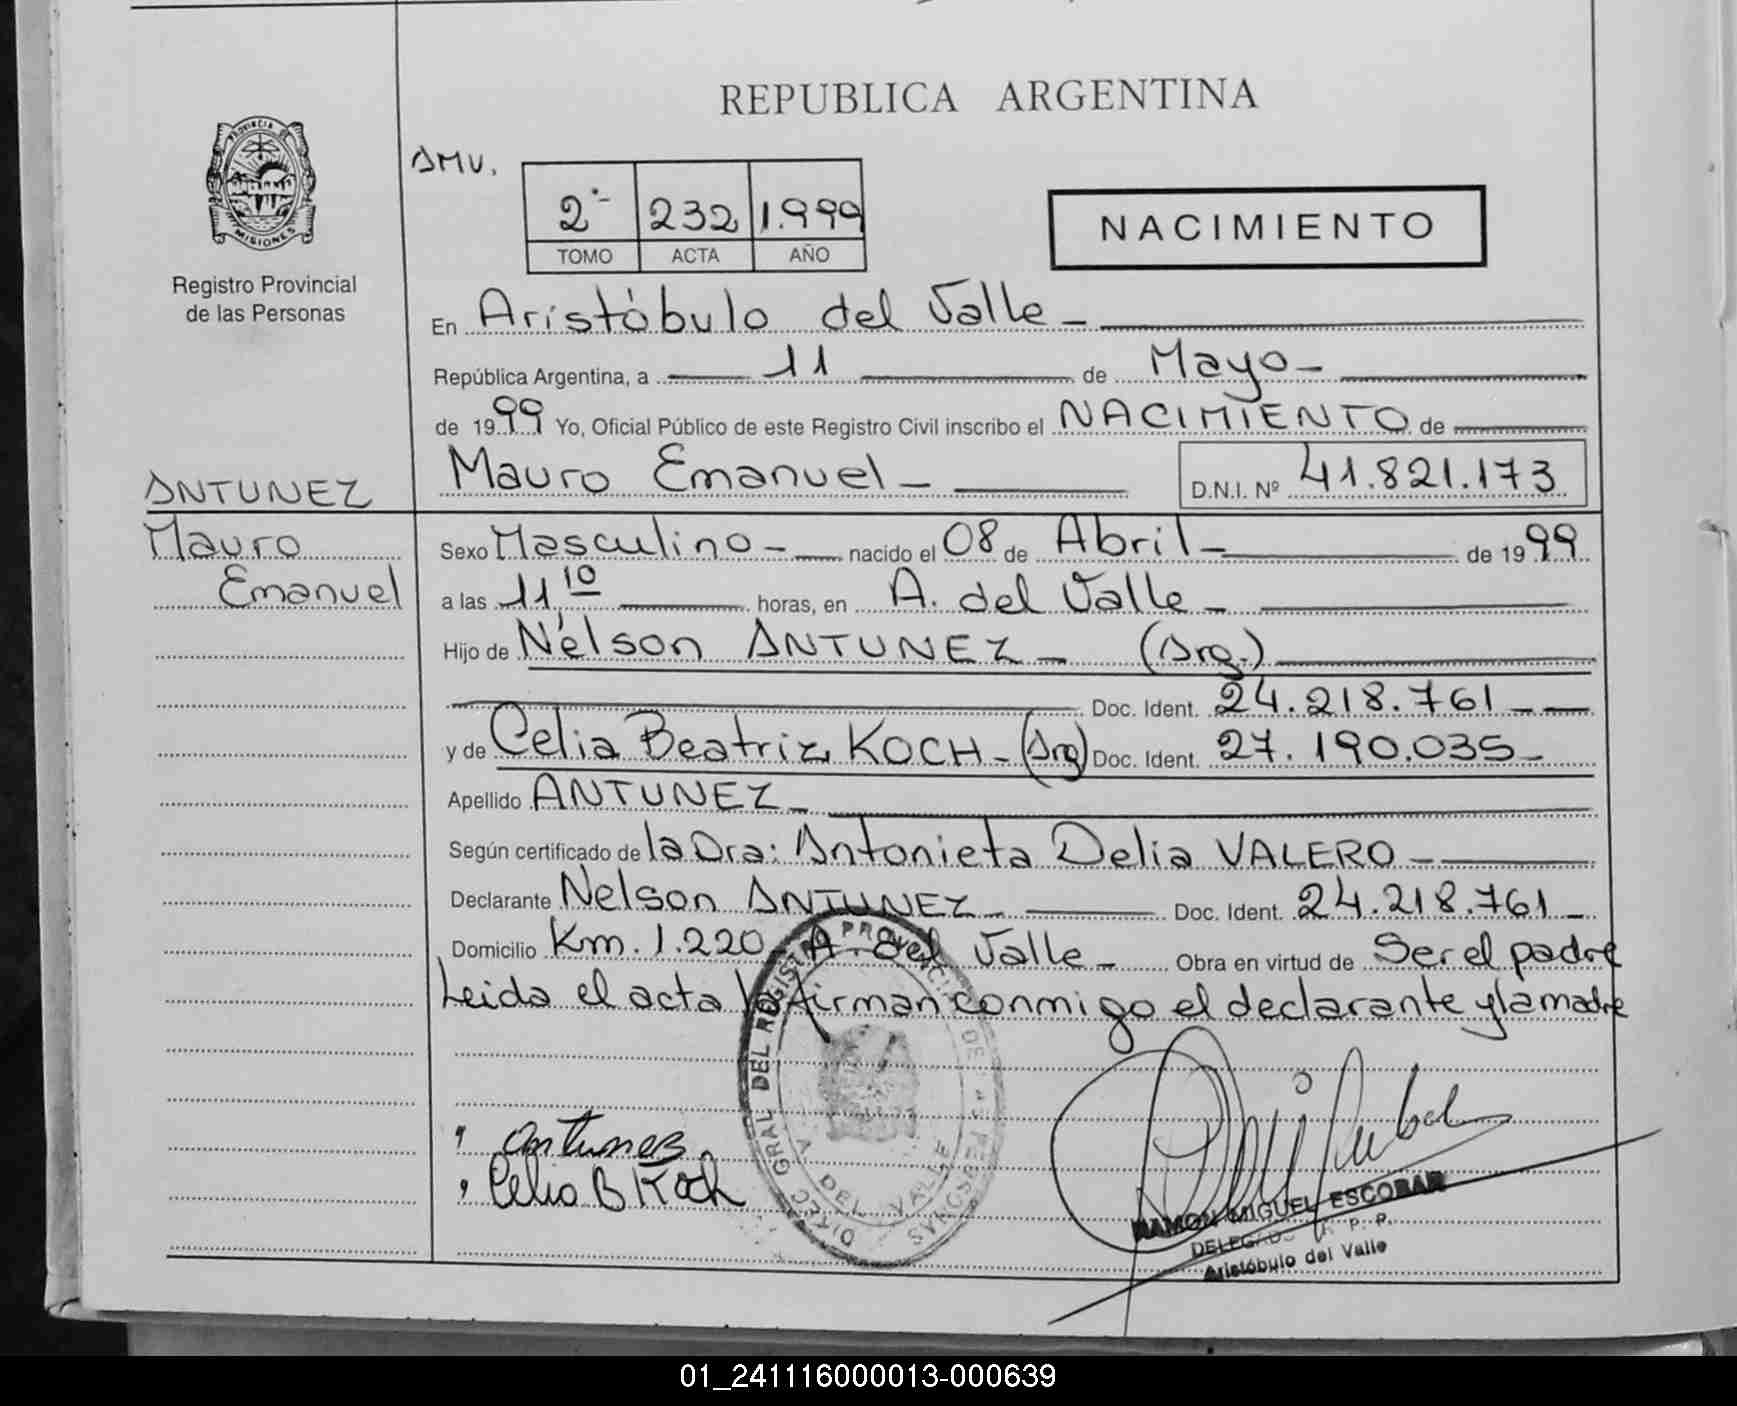 REPUBLICA ARGENTINA
PROVINCIA DE MISIONES
Registro Provincial
de las Personas
AMV.
2º 232 1.999
TOMO ACTA AÑO
NACIMIENTO
En Aristóbulo del Valle
República Argentina, a 11 de Mayo
de 1999 Yo, Oficial Público de este Registro Civil inscribo el NACIMIENTO de
Mauro Emanuel D.N.I. Nº 41.821.173
ANTUNEZ
Mauro
Emanuel
Sexo Masculino nacido el 08 de Abril de 1999
a las 11,10 horas, en A. del Valle
Hijo de Nélson ANTUNEZ (Arg.)
Doc. Ident. 24.218.761
y de Celia Beatriz KOCH (Arg) Doc. Ident. 27.190.035
Apellido ANTUNEZ
Según certificado de la Dra: Antonieta Delia VALERO
Declarante Nelson ANTUNEZ Doc. Ident. 24.218.761
Domicilio Km. 1.220 A. del Valle Obra en virtud de Ser el padre
Leida el acta la firman conmigo el declarante y la madre
Antunez
Celia B Koch
DIREC GRAL DEL REGISTRO PROVINCIAL DE LAS PERSONAS
A DEL VALLE
RAMON MIGUEL ESCOBAR
DELEGADO R. P. P.
Aristóbulo del Valle
01_241116000013-000639